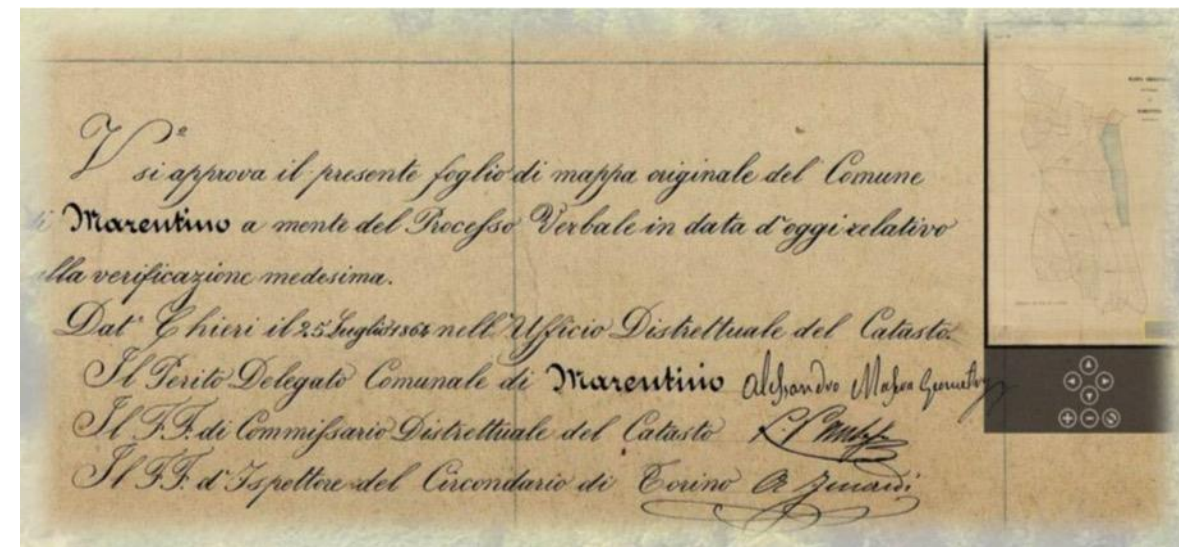 V.°
si approva il presente foglio di mappa originale del Comune
di Marentino a mente del Processo Verbale in data d'oggi relativo
alla verificazione medesima.
Dat° Chieri il 25 Luglio 1864 nell'Ufficio Distrettuale del Catasto.
Il Perito Delegato Comunale di Marentino Alessandro
Il F.F. di Commissario Distrettuale del Catasto
Il F.F. d'Ispettore del Circondario di Torino